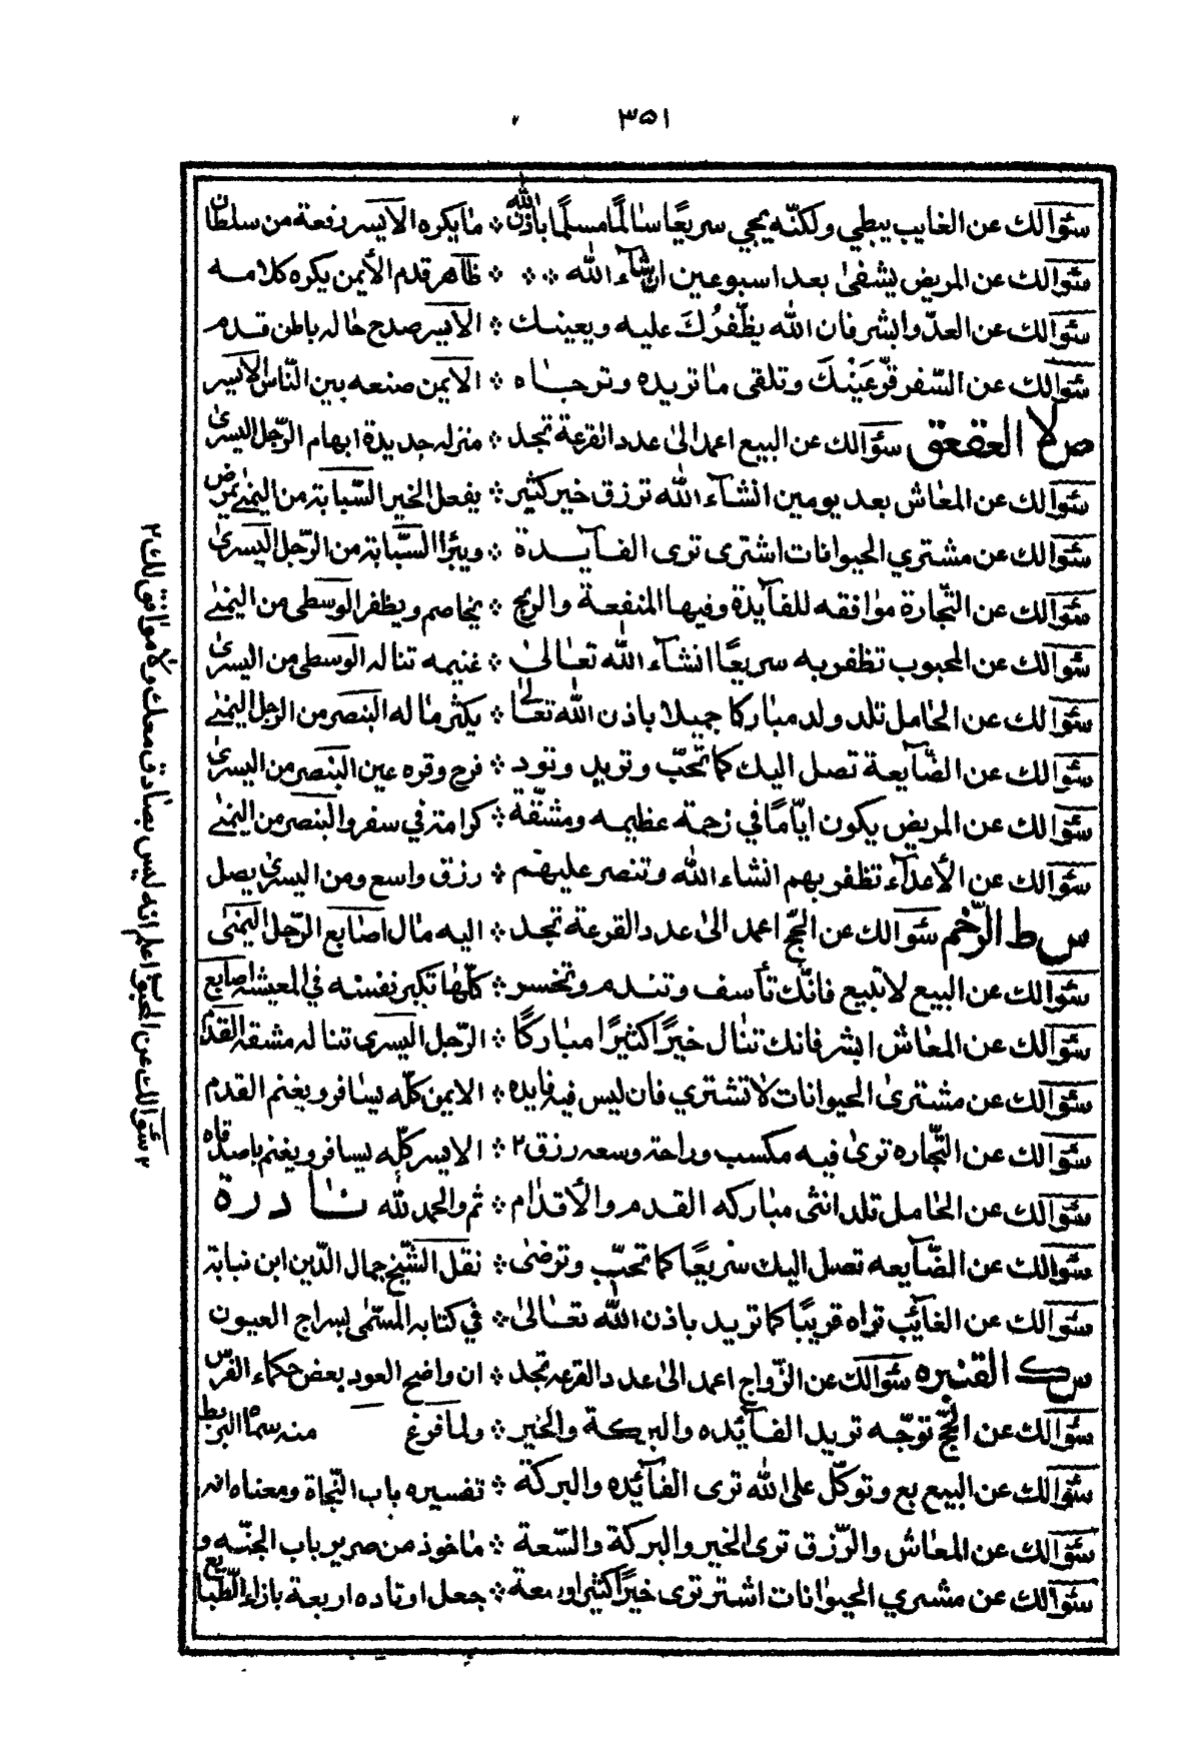 ٣٥١
سئوالك عن الغايب يبطي ولكنّه يجي سريعًا سالمًا مسلمًا باذن الله ∴ ما يكره الايسر رفعة من سلطان
سئوالك عن المريض يشفى بعد اسبوعين انشاء الله ∴ ∴ ظاهر قدم الأيمن يكره كلامه
سئوالك عن العدّو ابشر فان الله يظّفرك عليه ويعينك ∴ الايسر صلح حاله باطن قدم
سئوالك عن السّفر قرّ عَيْنَكَ وتلقى ما تريده وترجاه ∴ الايمن صنعه بين النّاس الايسر
العقعق سئوالك عن البيع اعمد الى عدد القرعة تجد ∴ منزله جديدة ابهام الرّجل اليسرى
سئوالك عن المعاش بعد يومين انشاء الله ترزق خير كثير ∴ يفعل الخير السّبابة من اليمنى يمرض
سئوالك عن مشتري الحيوانات اشترى ترى الفايدة ∴ ويبرا السّبّابة من الرّجل اليسرى
سئوالك عن التّجارة موافقه للفايدة وفيها المنفعة والربح ∴ يخاصم ويظفر الوسطى من اليمنى
سئوالك عن المحبوب تظفر به سريعًا انشاء الله تعالى ∴ غنيمه تناله الوسطى من اليسرى
سئوالك عن الحامل تلد ولد مباركا جميلا باذن الله تعالى ∴ يكثر ماله البنصر من الرجل اليمنى
سئوالك عن الضّايعة تصل اليك كما تحبّ وتريد وتود ∴ فرح وقره عين البنصر من اليسرى
سئوالك عن المريض يكون ايّامًا في زحمة عظيمه ومشقّة ∴ كرامة في سفر والبنصر من اليمنى
سئوالك عن الأعداء تظفر بهم انشاء الله وتنصر عليهم ∴ رزق واسع ومن اليسرى يصل
سط الرّخم سئوالك عن الحجّ اعمد الى عدد القرعة تجد ∴ اليه مال اصابع الرّجل اليمنى
سئوالك عن البيع لا تبيع فانّك تأسف وتندم وتخسر ∴ كلّها تكبر نفسه في المعيشة اصابع
سئوالك عن المعاش ابشر فانك تنال خيرًا كثيرًا مباركًا ∴ الرّجل اليسرى تناله مشقة القدم
سئوالك عن مشترى الحيوانات لا تشتري فان ليس فيه فايده ∴ الايمن كلّه يسافر ويغنم القدم
سئوالك عن التّجاره ترى فيه مكسب وراحة وسعه رزق ٢ ∴ الايسر كلّه يسافر ويغنم باصدقاه
سئوالك عن الحامل تلد انثى مباركه القدم والأقدام ∴ تم والحمد لله نادرة
سئوالك عن الضّايعه تصل اليك سريعًا كما تحبّ وترضى ∴ نقل الشّيخ جمال الدّين ابن نباتة
سئوالك عن الغائب تراه قريبًا كما تريد باذن الله تعالى ∴ في كتابه المسّمى بسراج العيون
سك القنبره سئوالك عن الزّواج اعمد الى عدد القرعه تجد ∴ ان واضح العود بعض حكماء الفرس
سئوالك عن الحجّ توجّه تريد الفائده والبركة والخير ∴ ولما فرغ منه سماه البربط
سئوالك عن البيع بع وتوكّل على الله ترى الفائده والبركة ∴ تفسيره باب النّجاة ومعناه انه
سئوالك عن المعاش والرّزق ترى الخير والبركة والسّعة ∴ ماخوذ من صرير باب الجنّه و
سئوالك عن مشتري الحيوانات اشتر ترى خيرًا كثيرا وسعة ∴ جعل اوتاده اربعة بازاء الطبايع
٢ سئوالك عن المحبوب اعلم انه ليس بصادق معك ولا موافق لك ٢